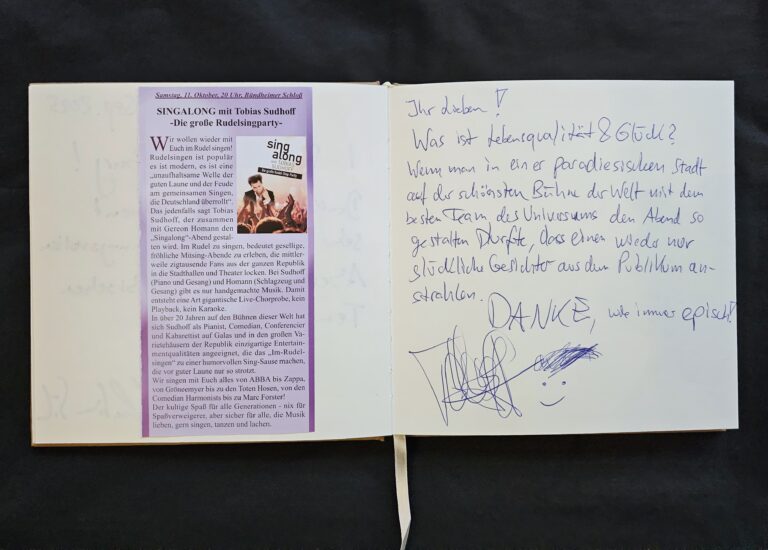 Samstag, 11. Oktober, 20 Uhr, Bündheimer Schloß
SINGALONG mit Tobias Sudhoff
-Die große Rudelsingparty-
Wir wollen wieder mit
Euch im Rudel singen!
Rudelsingen ist populär
es ist modern, es ist eine
„unaufhaltsame Welle der
guten Laune und der Feude
am gemeinsamen Singen,
die Deutschland überrollt".
Das jedenfalls sagt Tobias
Sudhoff, der zusammen
mit Gereon Homann den
„Singalong"-Abend gestal-
ten wird. Im Rudel zu singen, bedeutet gesellige,
fröhliche Mitsing-Abende zu erleben, die mittler-
weile zigtausende Fans aus der ganzen Republik
in die Stadthallen und Theater locken. Bei Sudhoff
(Piano und Gesang) und Homann (Schlagzeug und
Gesang) gibt es nur handgemachte Musik. Damit
entsteht eine Art gigantische Live-Chorprobe, kein
Playback, kein Karaoke.
In über 20 Jahren auf den Bühnen dieser Welt hat
sich Sudhoff als Pianist, Comedian, Conferencier
und Kabarettist auf Galas und in den großen Va-
rietehäusern der Republik einzigartige Entertain-
mentqualitäten angeeignet, die das „Im-Rudel-
singen" zu einer humorvollen Sing-Sause machen,
die vor guter Laune nur so strotzt.
Wir singen mit Euch alles von ABBA bis Zappa,
von Grönemyer bis zu den Toten Hosen, von den
Comedian Harmonists bis zu Marc Forster!
Der kultige Spaß für alle Generationen - nix für
Spaßverweigerer, aber sicher für alle, die Musik
lieben, gern singen, tanzen und lachen.
sing
along
Ihr Lieben!
Was ist Lebensqualität & Glück?
Wenn man in einer paradiesischen Stadt
auf der schönsten Bühne der Welt mit dem
besten Team des Universums den Abend so
gestalten Durfte, dass einen wieder nur
glückliche Gesichter aus dem Publikum an-
strahlen.
DANKE, wie immer episch!